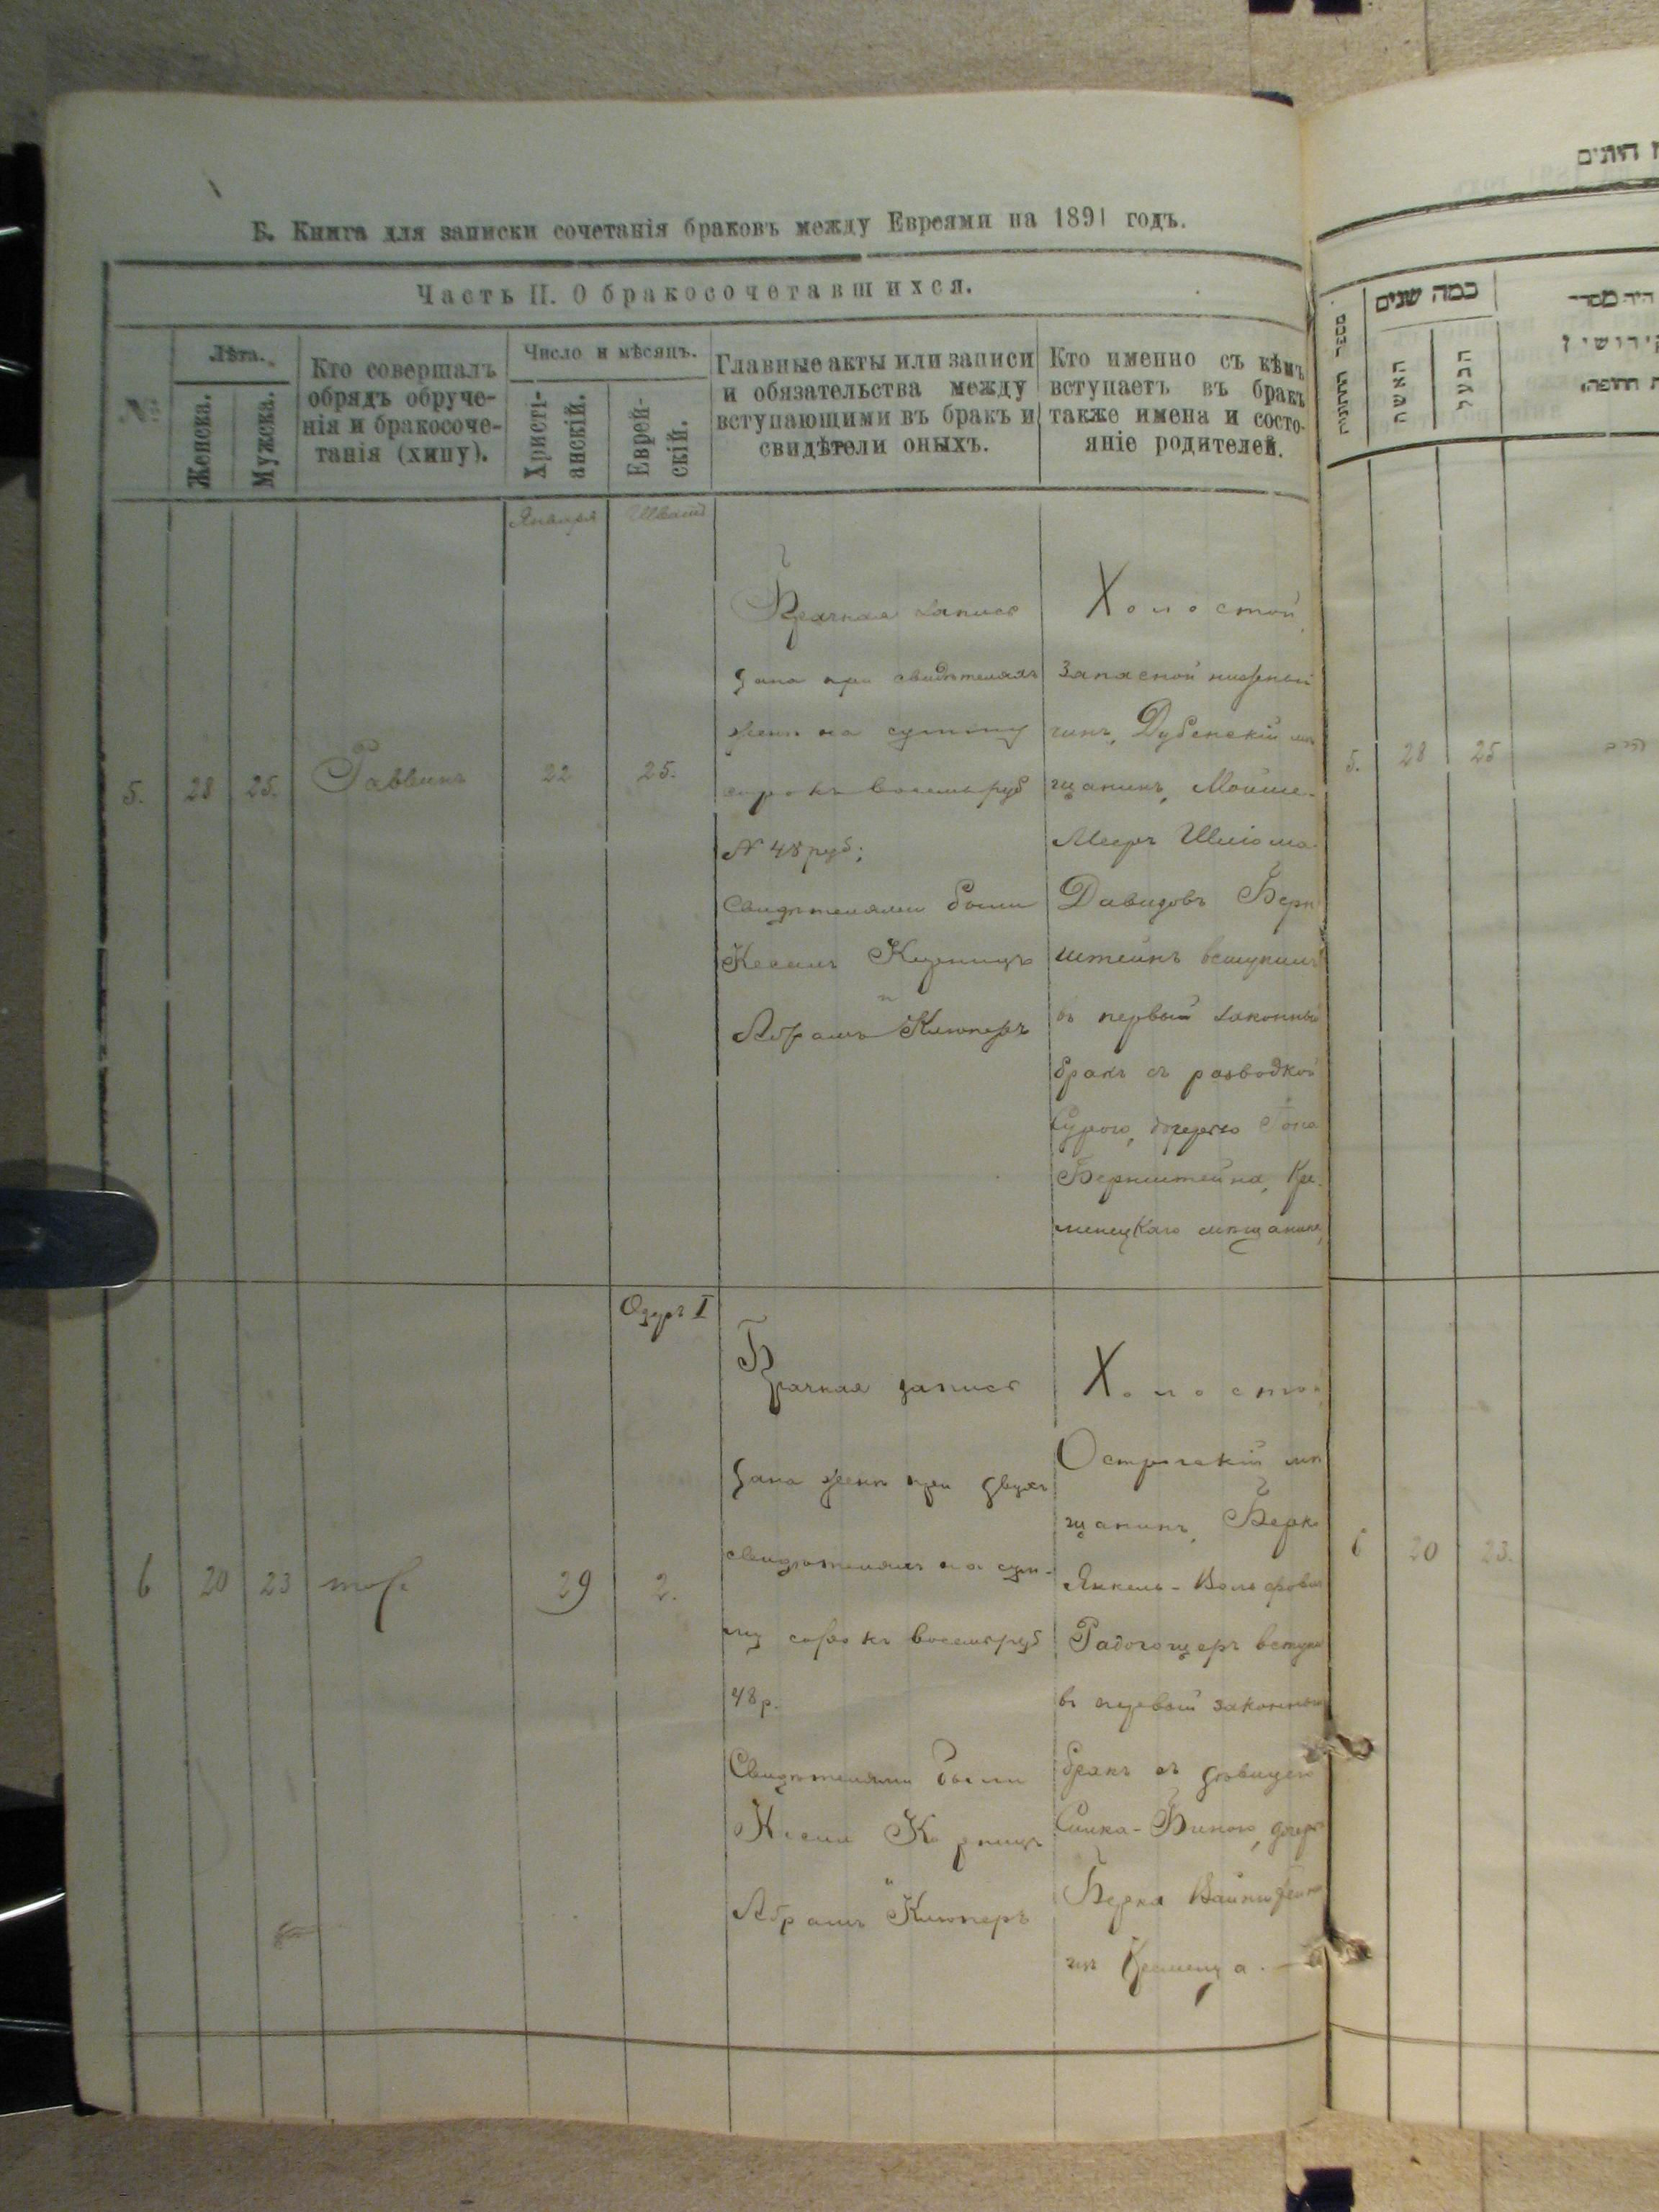 Б. Книга для записки сочетанія браковъ между Евреями на 1891 годъ.
Часть II. О бракосочетавшихся.
№
Лѣта.
Женска.
Мужска.
Кто совершалъ
обрядъ обруче-
нія и бракосоче-
танія (хипу).
Число и мѣсяцъ.
Христі-
анскій.
Еврей-
скій.
Главные акты или записи
и обязательства между
вступающими въ бракъ и
свидѣтели оныхъ.
Кто именно съ кѣмъ
вступаетъ въ бракъ
также имена и состо-
яніе родителей.
Января
Шватъ
5.
28
25.
Раввинъ
22
25.
Брачная запись
дана при свидѣтеляхъ
женѣ на сумму
сорокъ восемь руб
№ 48 руб;
Свидѣтелями были
Кесель
и
Абрамъ Клюперъ
Холостой
Запасной нижній
чинъ, Дубенскій мѣ
щанинъ, Мойше-
Мееръ Шліома-
Давидовъ Берн
штейнъ вступилъ
въ первый законный
бракъ съ разводкой
Сурою, дочерью
Бернштейна, Кре-
менецкаго мѣщанина,
Одеръ I
6
20
23
тоже
29
2.
Брачная запись
дана женѣ при двухъ
свидѣтеляхъ на сум-
му сорокъ восемь руб
48 р.
Свидѣтелями были
Кесель
и
Абрамъ Клюперъ
Холостой
Острожскій мѣ
щанинъ, Берко
Янкель-Вольфовичъ
Радогощеръ вступи
въ первый законный
бракъ съ дѣвицею
дочерью
Берка
изъ Кременца.
ה היתים
כמה שנים
האשה
הבעל
היה מסדר
קידושין
ת החופה
5.
28
25
הרב
6
20
23.